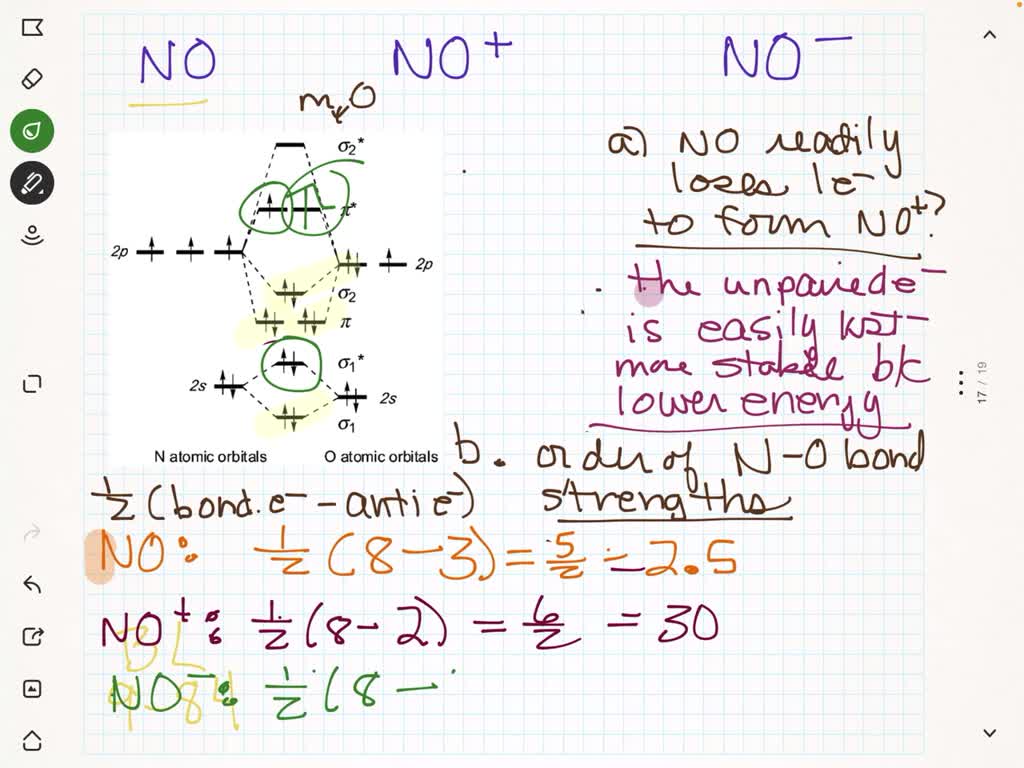 NO NO+ NO−
mO
a) NO readily
loses 1e−
to form NO+?
the unpaired e−
is easily lost−
more stable b/c
lower energy
σ2*
π*
2p 2p
σ2
π
σ1*
2s 2s
σ1
N atomic orbitals O atomic orbitals
b. order of N-O bond
strengths
1/2 (bond. e− − anti e−)
NO: 1/2 (8 − 3) = 5/2 = 2.5
NO+: 1/2 (8 − 2) = 6/2 = 30
NO−: 1/2 (8 −
17 / 19